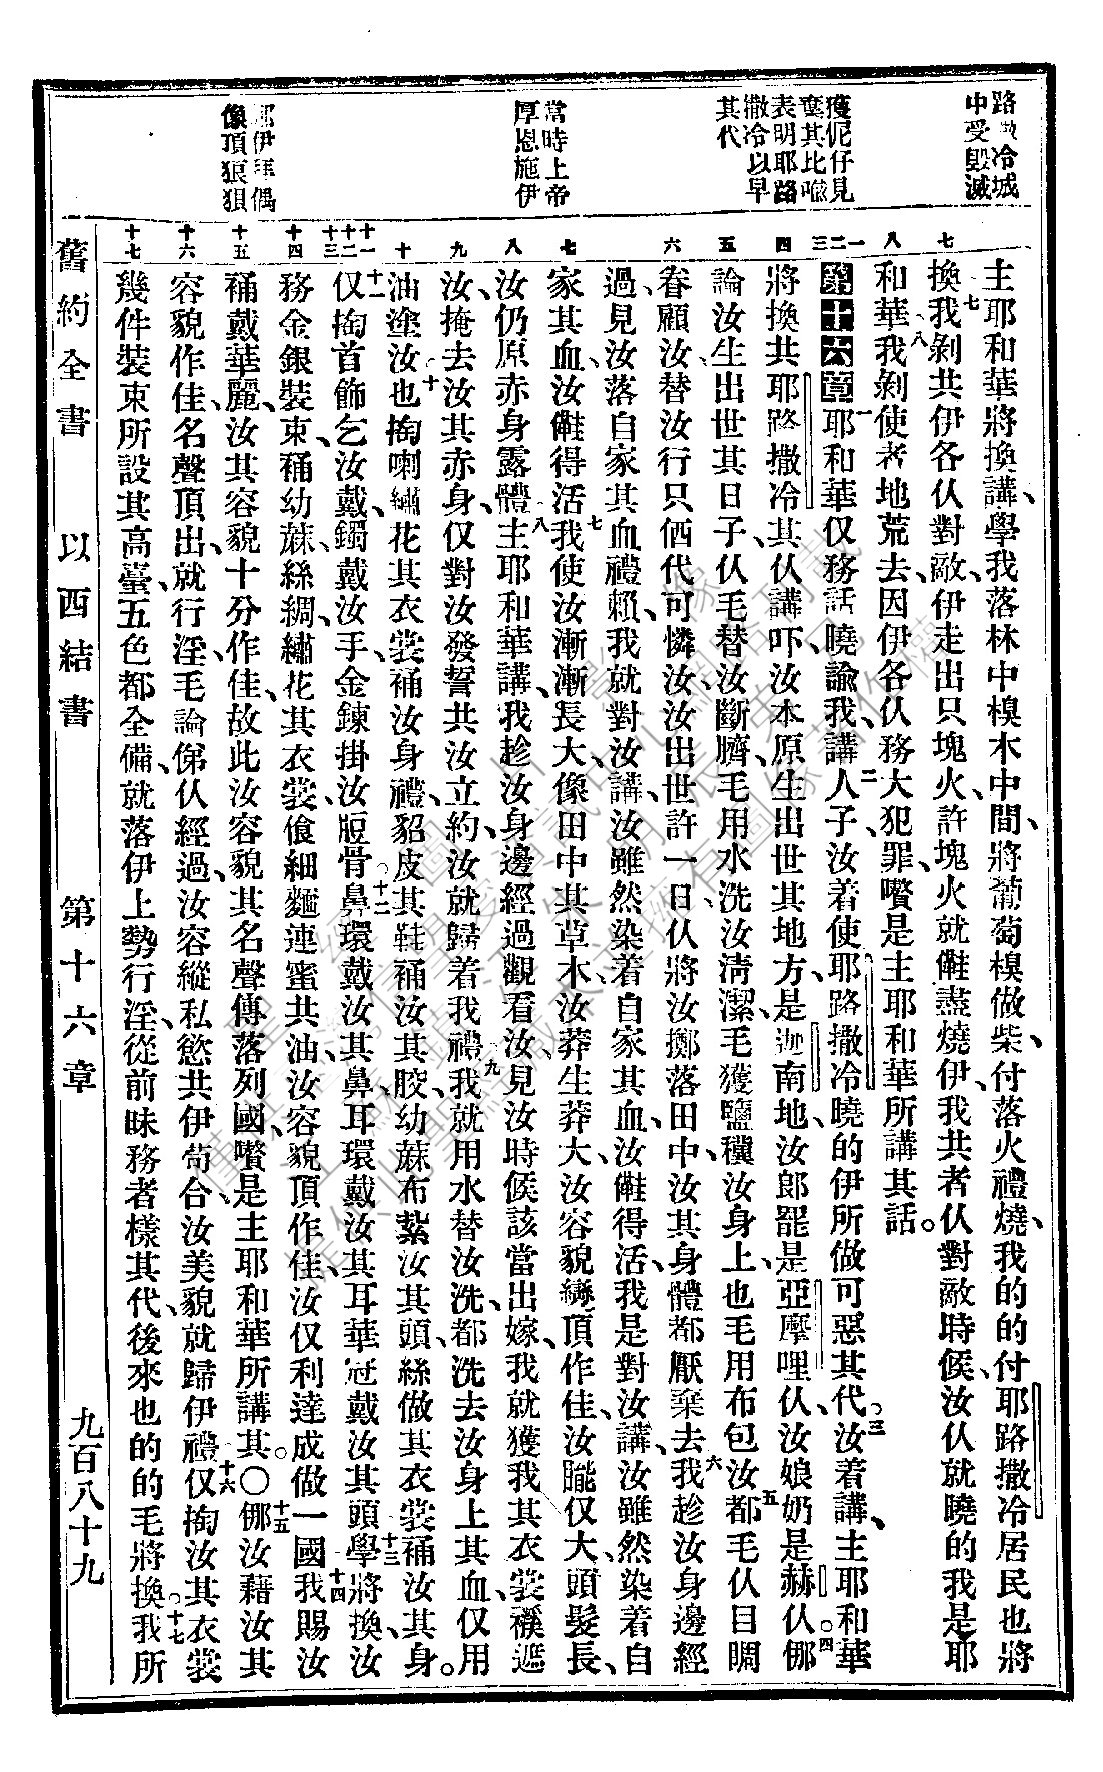 路撒冷城
中受毀滅
獲伲仔見
棄其比喩
表明耶路
撒冷以早
其代
當時上帝
厚恩施伊
耶伊拜偶
像頂狼狽
七
八
一二三
四
五
六
七
八
九
十
十一
十二
十三
十四
十五
十六
十七
主耶和華將換講、學我落林中模木中間、將葡萄模做柴、付落火禮燒、我的的付耶路撒冷居民也將
換我七剝共伊各仈對敵、伊走出只塊火、許塊火就儺盡燒伊、我共者仈對敵時候、汝仈就曉的我是耶
和華八我剝使者地荒去、因伊各仈務大犯罪、嚽是主耶和華所講其話。
第十六章一耶和華仅務話曉諭我講、二人子、汝着使耶路撒冷曉的伊所做可惡其代。三汝着講、主耶和華
將換共耶路撒冷其仈講吓、汝本原生出世其地方、是迦南地、汝郎罷是亞摩哩仈、汝娘奶是赫仈。四㑚
論汝生出世其日子、仈毛替汝斷臍、毛用水洗汝淸潔、毛獲鹽穬汝身上、也毛用布包汝、五都毛仈目睭
眷顧汝、替汝行只㑚代可憐汝、汝出世許一日、仈將汝擲落田中、汝其身體都厭棄去、六我趁汝身邊經
過、見汝落自家其血禮賴、我就對汝講、汝雖然染着自家其血、汝儺得活、我是對汝講、汝雖然染着自
家其血、汝儺得活、七我使汝漸漸長大、像田中其草木、汝莽生莽大、汝容貌變頂作佳、汝朧仅大、頭髮長、
汝仍原赤身露體、八主耶和華講、我趁汝身邊經過、觀看汝、見汝時候該當出嫁、我就獲我其衣裳襪遮
汝、掩去汝其赤身、仅對汝發誓共汝立約、汝就歸着我禮、九我就用水替汝洗、都洗去汝身上其血、仅用
油塗汝也、十掏喇繡花其衣裳䘄汝身禮、貂皮其鞋䘄汝其骹、幼蔴布紮汝其頭、絲做其衣裳䘄汝其身。
十一仅掏首飾乞汝戴、鐲戴汝手、金鍊掛汝脰骨、十二鼻環戴汝其鼻、耳環戴汝其耳、華冠戴汝其頭、十三學將換、汝
務金銀裝束、䘄幼蔴、絲綢、繡花其衣裳、飠細麵連蜜共油、汝容貌頂作佳、汝仅利達成做一國、十四我賜汝
䘄戴華麗、汝其容貌十分作佳、故此汝容貌其名聲傳落列國、嚽是主耶和華所講其。〇十五㑚汝藉汝其
容貌作佳、名聲頂出、就行淫、毛論俤仈經過、汝容縱私慾共伊苟合、汝美貌就歸伊禮、十六仅掏汝其衣裳
幾件裝束所設其高臺、五色都全備、就落伊上勢行淫、從前昧務者樣其代、後來也的的毛將換。十七我所
舊約全書 以西結書 第十六章 九百八十九